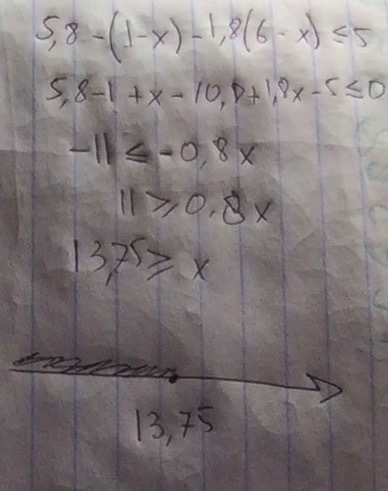 5,8-(1-x)-1,8(6-x)≤5
5,8-1+x-10,8+1,8x-5≤0
-11≤-0,8x
11≥0,8x
13,75≥x
13,75